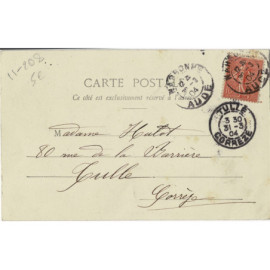 11-80Fr.
6€
CARTE POSTALE
Ce côté est exclusivement réservé à
NARBONNE
AUDE
04
TULLE
3 30
31-3
04
CORRÈZE
Madame Hatot
80 rue de la Barrière
Tulle
Corrèze